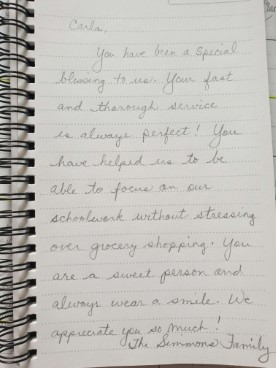 Carla,
You have been a special
blessing to us. Your fast
and thorough service
is always perfect! You
have helped us to be
able to focus on our
schoolwork without stressing
over grocery shopping. You
are a sweet person and
always wear a smile. We
appreciate you so much!
The Simmons Family